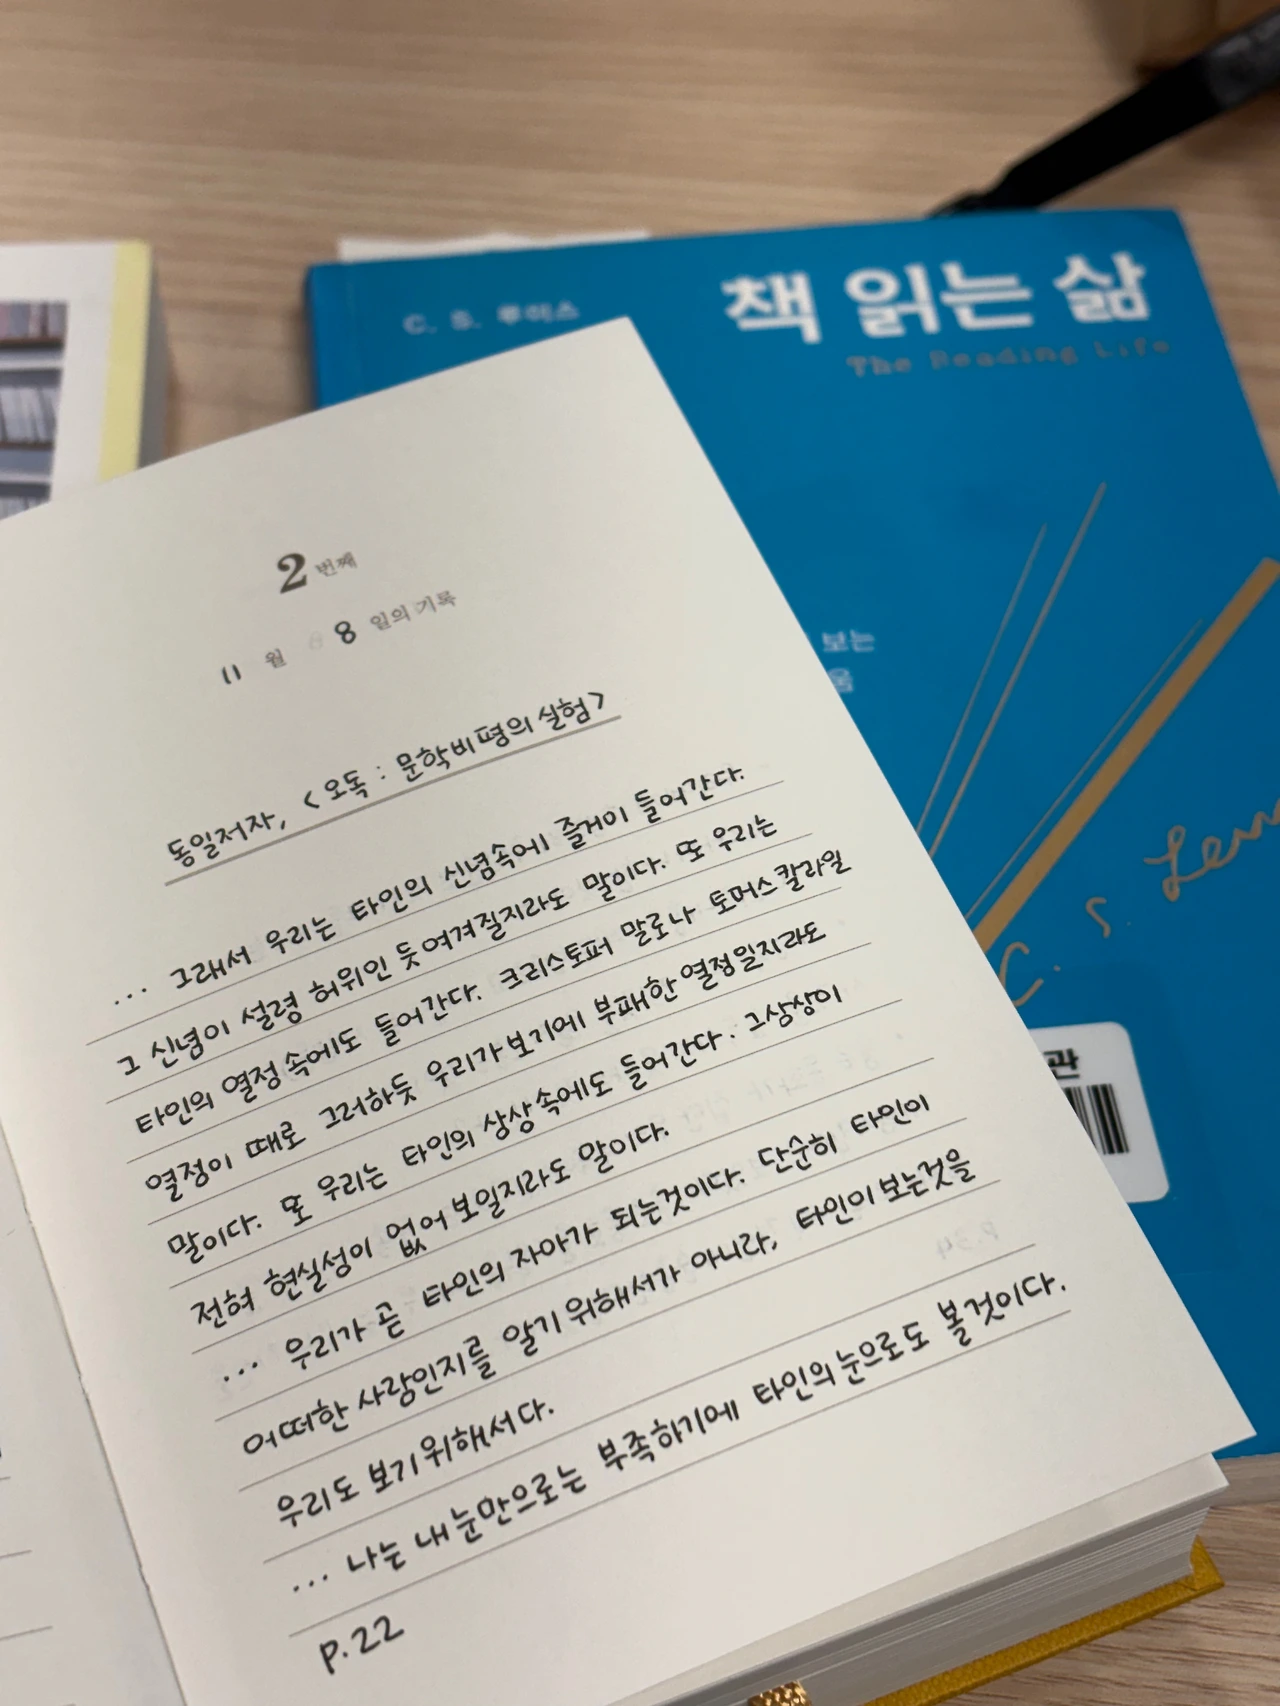 C. S. 루이스
책 읽는 삶
The Reading Life
보는
움
C. S. Lew
관
2 번째
11 월 8 일의 기록
동일저자, <오독 : 문학비평의 실험>
... 그래서 우리는 타인의 신념속에 즐거이 들어간다.
그 신념이 설령 허위인 듯 여겨질지라도 말이다. 또 우리는
타인의 열정 속에도 들어간다. 크리스토퍼 말로나 토머스칼라일
열정이 때로 그러하듯 우리가 보기에 부패한 열정일지라도
말이다. 또 우리는 타인의 상상속에도 들어간다. 그상상이
전혀 현실성이 없어 보일지라도 말이다.
... 우리가 곧 타인의 자아가 되는것이다. 단순히 타인이
어떠한 사람인지를 알기 위해서가 아니라, 타인이 보는것을
우리도 보기위해서다.
... 나는 내 눈만으로는 부족하기에 타인의 눈으로도 볼것이다.
p.22